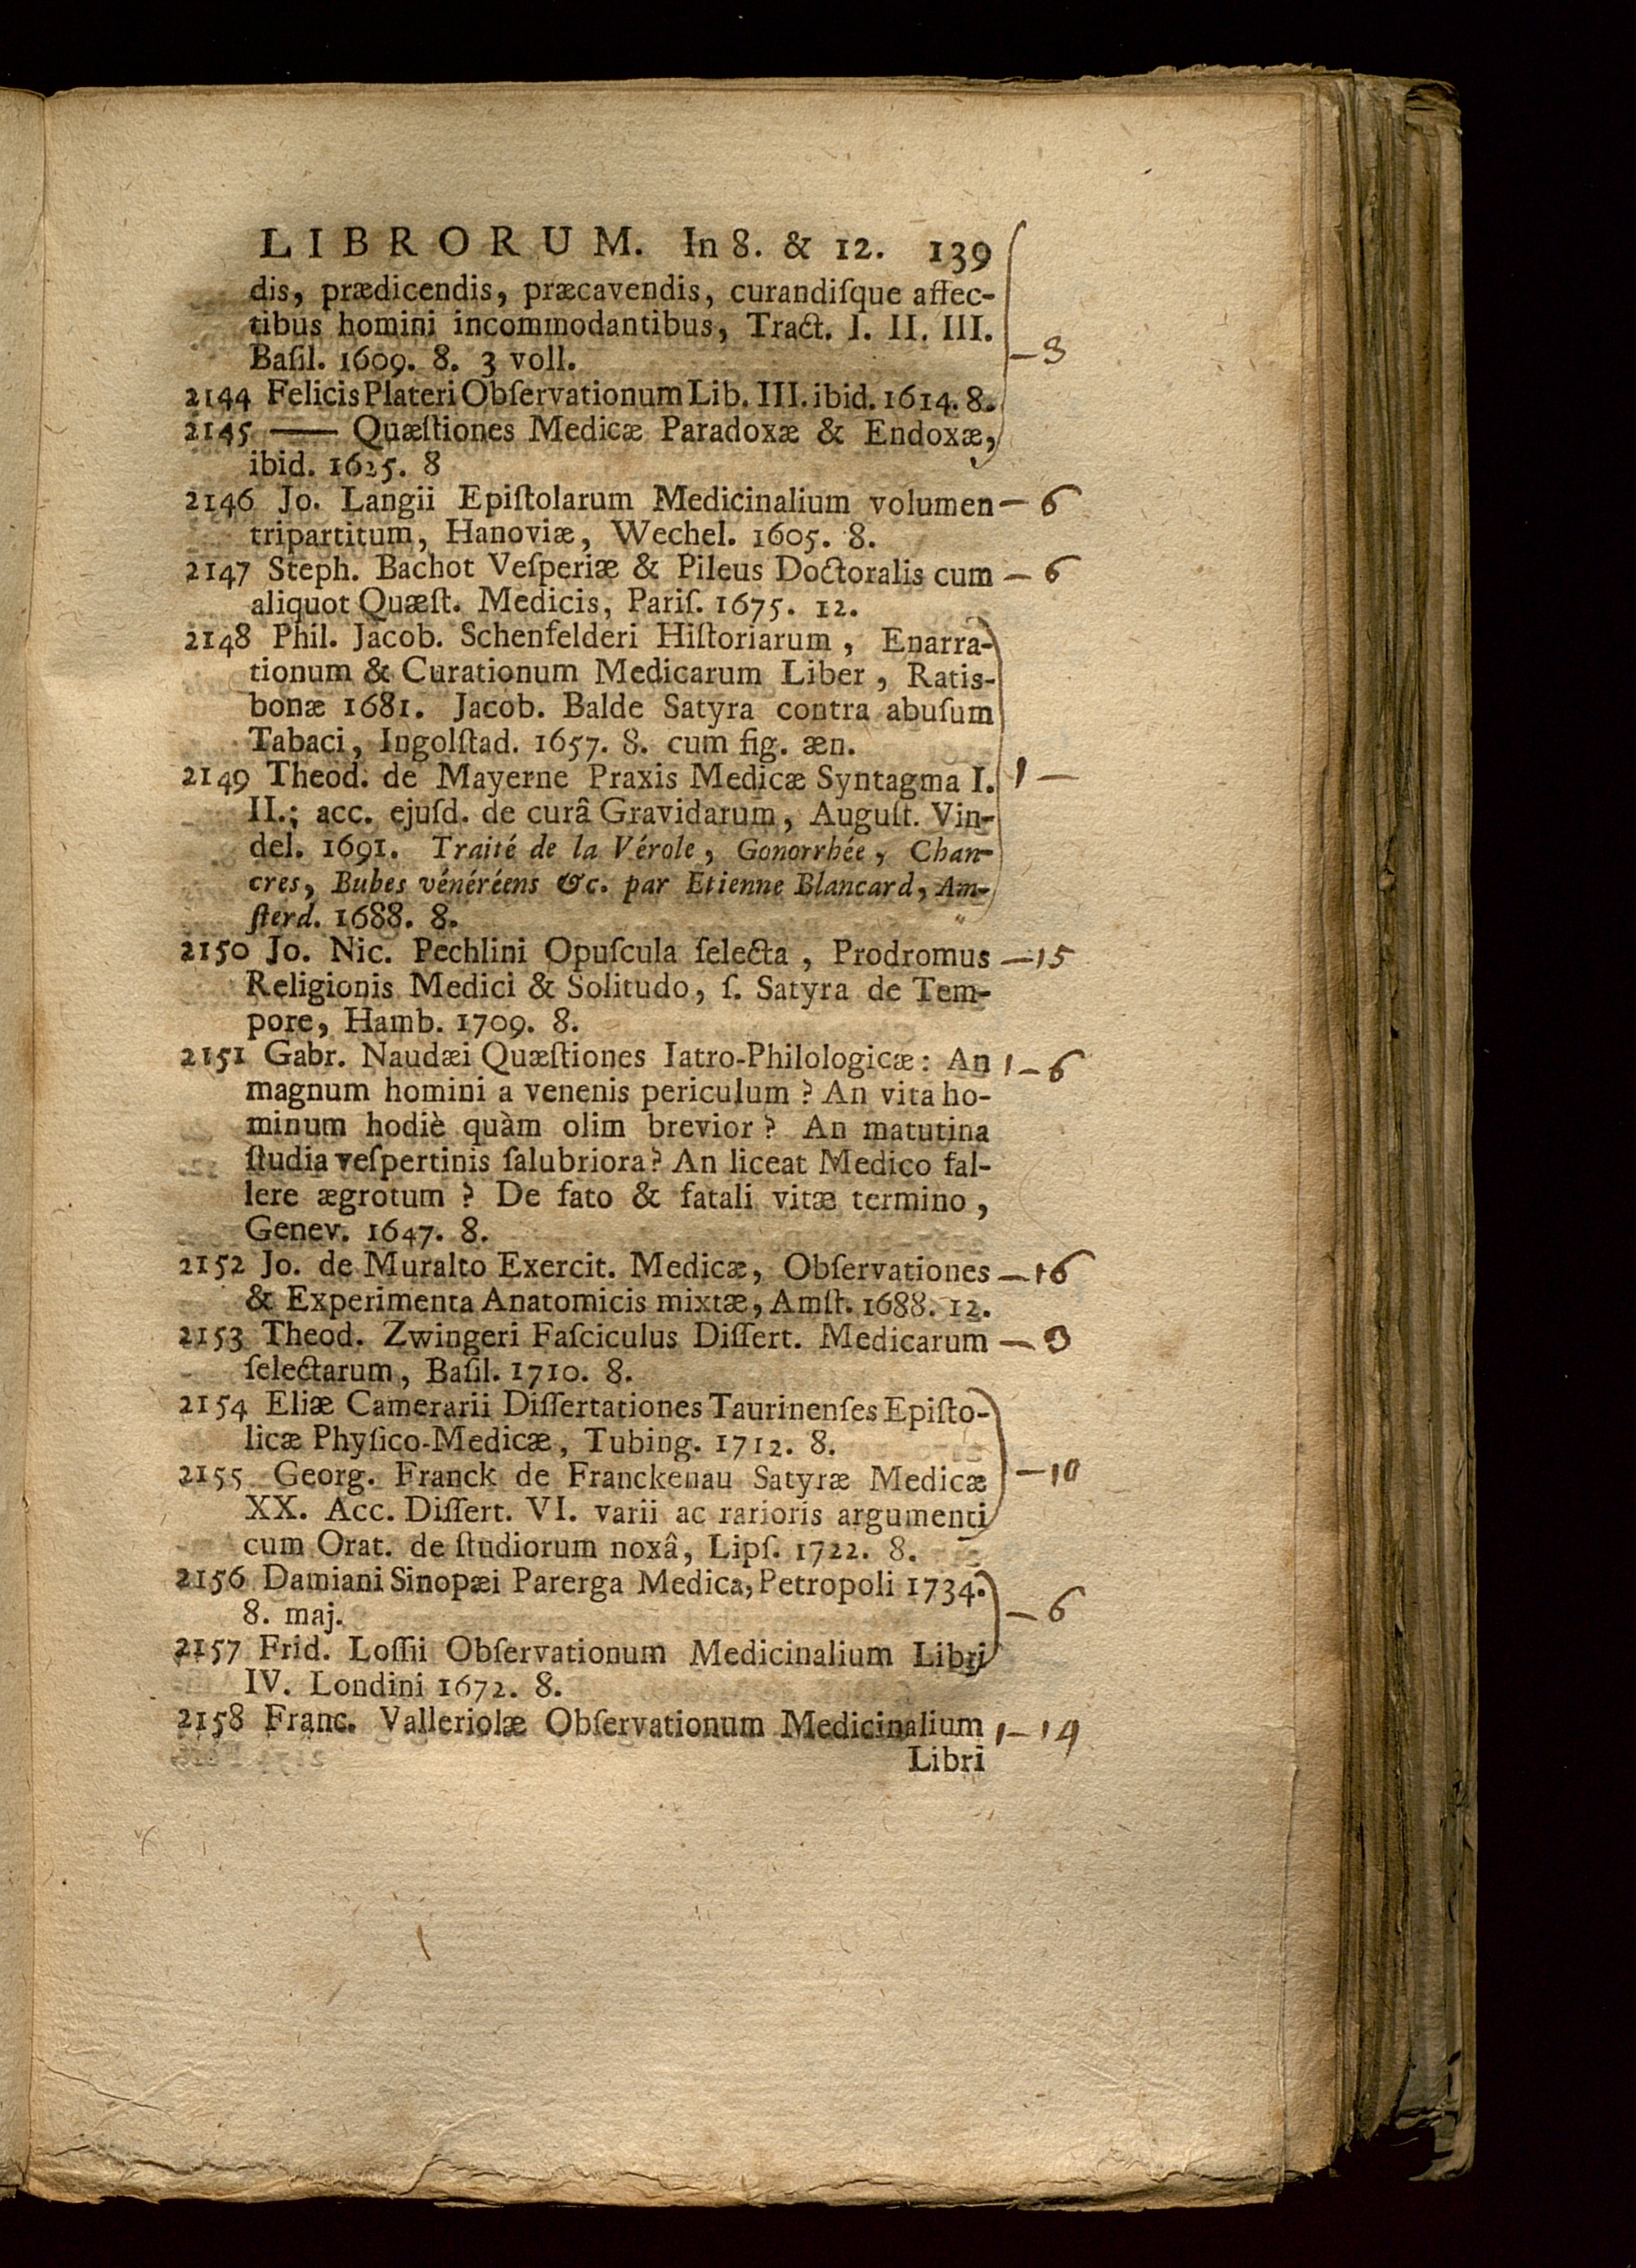 LIBRORUM. In 8. & 12. 139
dis, prædicendis, præcavendis, curandiſque affec-
tibus homini incommodantibus, Tract. I. II. III.
Baſil. 1609. 8. 3 voll. — 3
2144 Felicis Plateri Obſervationum Lib. III. ibid. 1614. 8.
2145 —— Quæſtiones Medicæ Paradoxæ & Endoxæ,
ibid. 1625. 8
2146 Jo. Langii Epiſtolarum Medicinalium volumen — 6
tripartitum, Hanoviæ, Wechel. 1605. 8.
2147 Steph. Bachot Veſperiæ & Pileus Doctoralis cum — 6
aliquot Quæſt. Medicis, Pariſ. 1675. 12.
2148 Phil. Jacob. Schenfelderi Hiſtoriarum, Enarra-
tionum & Curationum Medicarum Liber, Ratis-
bonæ 1681. Jacob. Balde Satyra contra abuſum
Tabaci, Ingolſtad. 1657. 8. cum fig. æn.
2149 Theod. de Mayerne Praxis Medicæ Syntagma I. 1 —
II.; acc. ejuſd. de curâ Gravidarum, Auguſt. Vin-
del. 1691. Traité de la Vérole, Gonorrhée, Chan-
cres, Bubes vénéréens &c. par Etienne Blancard, Am-
ſterd. 1688. 8.
2150 Jo. Nic. Pechlini Opuſcula ſelecta, Prodromus — 15
Religionis Medici & Solitudo, ſ. Satyra de Tem-
pore, Hamb. 1709. 8.
2151 Gabr. Naudæi Quæſtiones Iatro-Philologicæ: An 1 — 6
magnum homini a venenis periculum? An vita ho-
minum hodiè quàm olim brevior? An matutina
ſtudia veſpertinis ſalubriora? An liceat Medico fal-
lere ægrotum? De fato & fatali vitæ termino,
Genev. 1647. 8.
2152 Jo. de Muralto Exercit. Medicæ, Obſervationes — 16
& Experimenta Anatomicis mixtæ, Amſt. 1688. 12.
2153 Theod. Zwingeri Faſciculus Diſſert. Medicarum —
ſelectarum, Baſil. 1710. 8.
2154 Eliæ Camerarii Diſſertationes Taurinenſes Epiſto-
licæ Phyſico-Medicæ, Tubing. 1712. 8.
2155 Georg. Franck de Franckenau Satyræ Medicæ — 10
XX. Acc. Diſſert. VI. varii ac rarioris argumenti
cum Orat. de ſtudiorum noxâ, Lipſ. 1722. 8.
2156 Damiani Sinopæi Parerga Medica, Petropoli 1734.
8. maj. — 6
2157 Frid. Loſſii Obſervationum Medicinalium Libri
IV. Londini 1672. 8.
2158 Franc. Valleriolæ Obſervationum Medicinalium 1 — 14
Libri